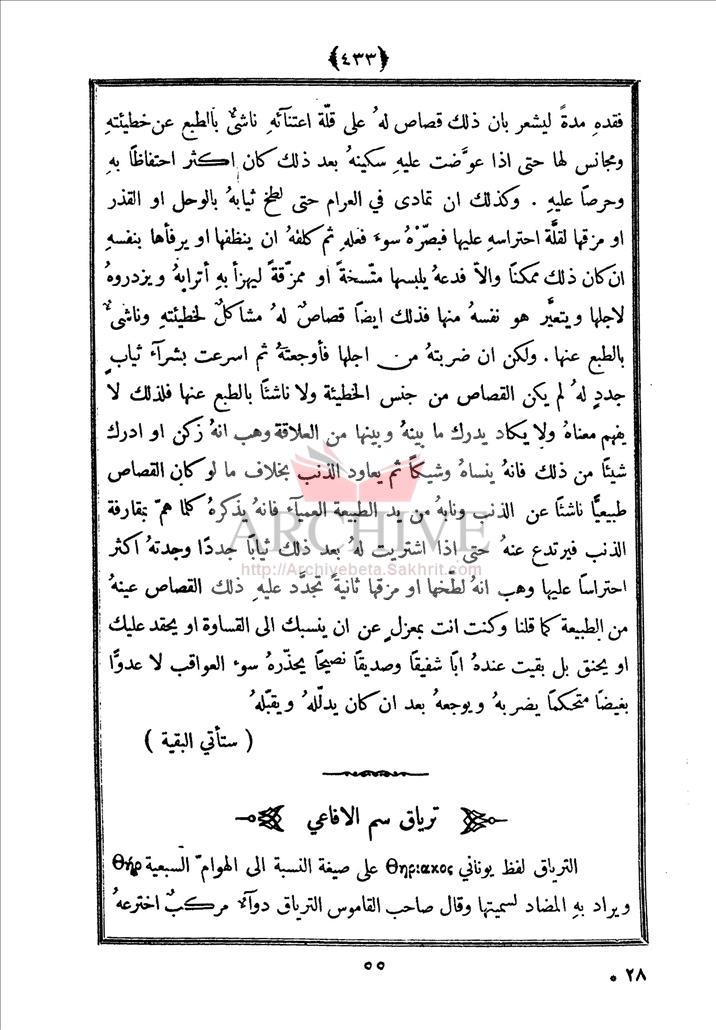 ﴿٤٣٣﴾
فقدهِ مدةً ليشعر بان ذلك قصاص لهُ على قلّة اعتنآئهِ ناشئٌ بالطبع عن خطيئتهِ
ومجانس لها حتى اذا عوَّضت عليهِ سكينهُ بعد ذلك كان اكثر احتفاظًا بهِ
وحرصًا عليهِ . وكذلك ان تمادى في العرام حتى لطخ ثيابهُ بالوحل او القذر
او مزقها لقلَّة احتراسهِ عليها فبصّرْهُ سوء فعلهِ ثم كلفهُ ان ينظفها او يرفأها بنفسهِ
ان كان ذلك ممكنًا والّا فدعهُ يلبسها متّسخةً او ممزّقةً ليهزأ بهِ أترابهُ ويزدروهُ
لاجلها ويتعيَّر هو نفسهُ منها فذلك ايضًا قصاصٌ لهُ مشاكلٌ لخطيئتهِ وناشئٌ
بالطبع عنها . ولكن ان ضربتهُ من اجلها فأوجعتهُ ثم اسرعت بشرآء ثيابٍ
جددٍ لهُ لم يكن القصاص من جنس الخطيئة ولا ناشئًا بالطبع عنها فلذلك لا
يفهم معناهُ ولا يكاد يدرك ما بينهُ وبينها من العلاقة وهب انهُ زكن او ادرك
شيئًا من ذلك فانهُ ينساهُ وشيكًا ثم يعاود الذنب بخلاف ما لو كان القصاص
طبيعيًّا ناشئًا عن الذنب ونابهُ من يد الطبيعة العميآء فانهُ يذكرهُ كلما همّ بمقارفة
الذنب فيرتدع عنهُ حتى اذا اشتريت لهُ بعد ذلك ثيابًا جددًا وجدتهُ اكثر
احتراسًا عليها وهب انهُ لطّخها او مزقها ثانيةً تجدَّد عليهِ ذلك القصاص عينهُ
من الطبيعة كما قلنا وكنت انت بمعزلٍ عن ان ينسبك الى القساوة او يحقد عليك
او يحنق بل بقيت عندهُ ابًا شفيقًا وصديقًا نصيحًا يحذّرهُ سوء العواقب لا عدوًّا
بغيضًا متحكمًا يضربهُ ويوجعهُ بعد ان كان يدلّلهُ ويقبّلهُ
( ستأتي البقية )
ترياق سم الافاعي
الترياق لفظ يوناني Θηριακος على صيغة النسبة الى الهوامّ السبعية Θήρ
ويراد بهِ المضاد لسميتها وقال صاحب القاموس الترياق دوآءٌ مركبٌ اخترعهُ
٥٥
٢٨ *
ARCHIVE
http://Archivebeta.Sakhrit.com